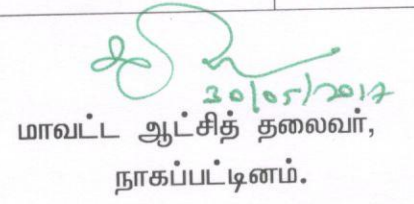 30/05/2017
மாவட்ட ஆட்சித் தலைவர்,
நாகப்பட்டினம்.